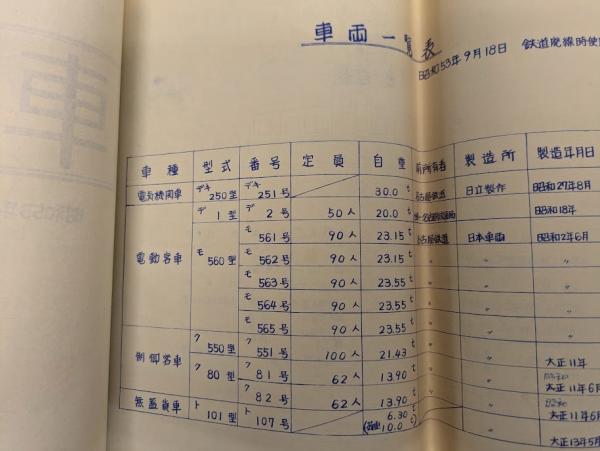 車両一覧表
昭和53年9月18日 鉄道廃線時使
車種 型式 番号 定員 自重 前所有者 製造所 製造年月日
電気機関車 デキ250型 デキ251号 30.0t 名古屋鉄道 日立製作 昭和27年8月
電動客車 デ1型 デ2号 50人 20.0t 昭和18年
モ560型 モ561号 90人 23.15t 名古屋鉄道 日本車輌 昭和2年6月
モ562号 90人 23.15t 〃 〃 〃
モ563号 90人 23.55t 〃 〃 〃
モ564号 90人 23.55t 〃 〃 〃
モ565号 90人 23.55t 〃 〃 〃
制御客車 ク550型 ク551号 100人 21.43t 〃 〃 大正11年
ク80型 ク81号 62人 13.90t 〃 〃 大正11年6月
ク82号 62人 13.90t 〃 〃 大正11年6月
無蓋貨車 ト101型 ト107号 6.30t (荷重10.0t) 〃 〃 大正13年5月
車
昭和53年